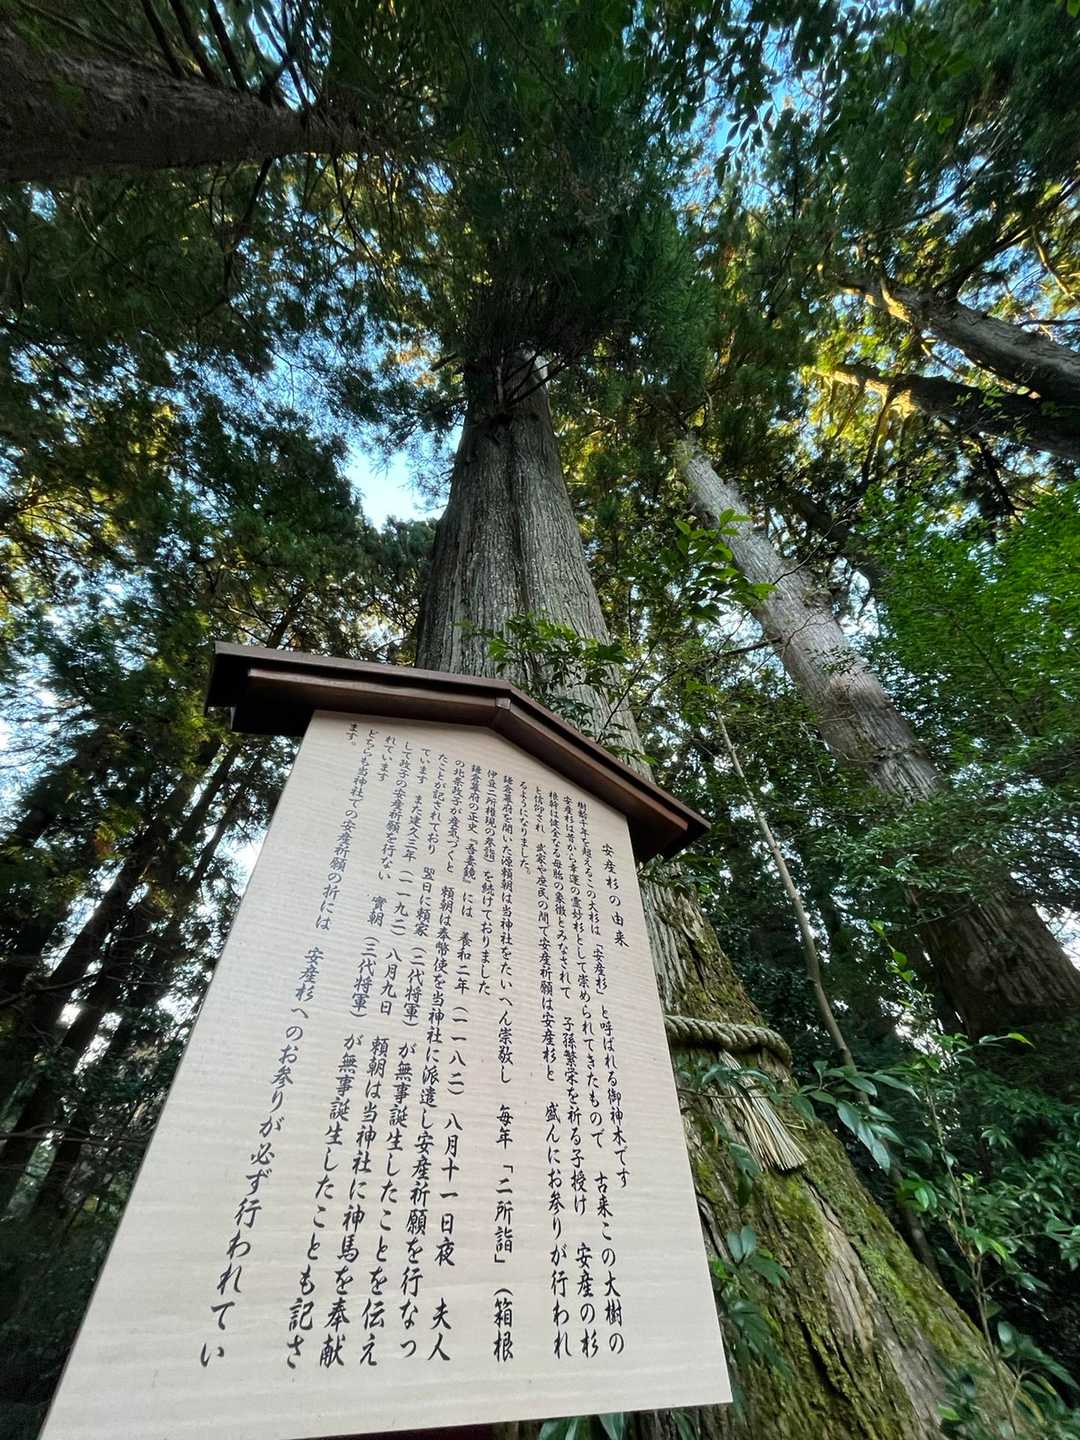 安産杉の由来
樹齢千年を超えるこの大杉は「安産杉」と呼ばれる御神木です
安産杉は昔から幸運の霊妙杉として崇められてきたもので 古来この大樹の
根幹は健全なる母胎の象徴とみなされて 子孫繁栄を祈る子授け 安産の杉
と信仰され 武家や庶民の間で安産祈願は安産杉と 盛んにお参りが行われ
るようになりました。
鎌倉幕府を開いた源頼朝は当神社をたいへん崇敬し 毎年「二所詣」(箱根
伊豆二所権現の参詣)を続けておりました
鎌倉幕府の正史「吾妻鏡」には 養和二年(一一八二)八月十一日夜 夫人
の北条政子が産気づくと 頼朝は奉幣使を当神社に派遣し安産祈願を行なっ
たことが記されており 翌日に頼家(二代将軍)が無事誕生したことを伝え
ています また建久三年(一一九二)八月九日 頼朝は当神社に神馬を奉献
して政子の安産祈願を行ない 實朝(三代将軍)が無事誕生したことも記さ
れています
どちらも当神社での安産祈願の折には 安産杉へのお参りが必ず行われてい
ます。